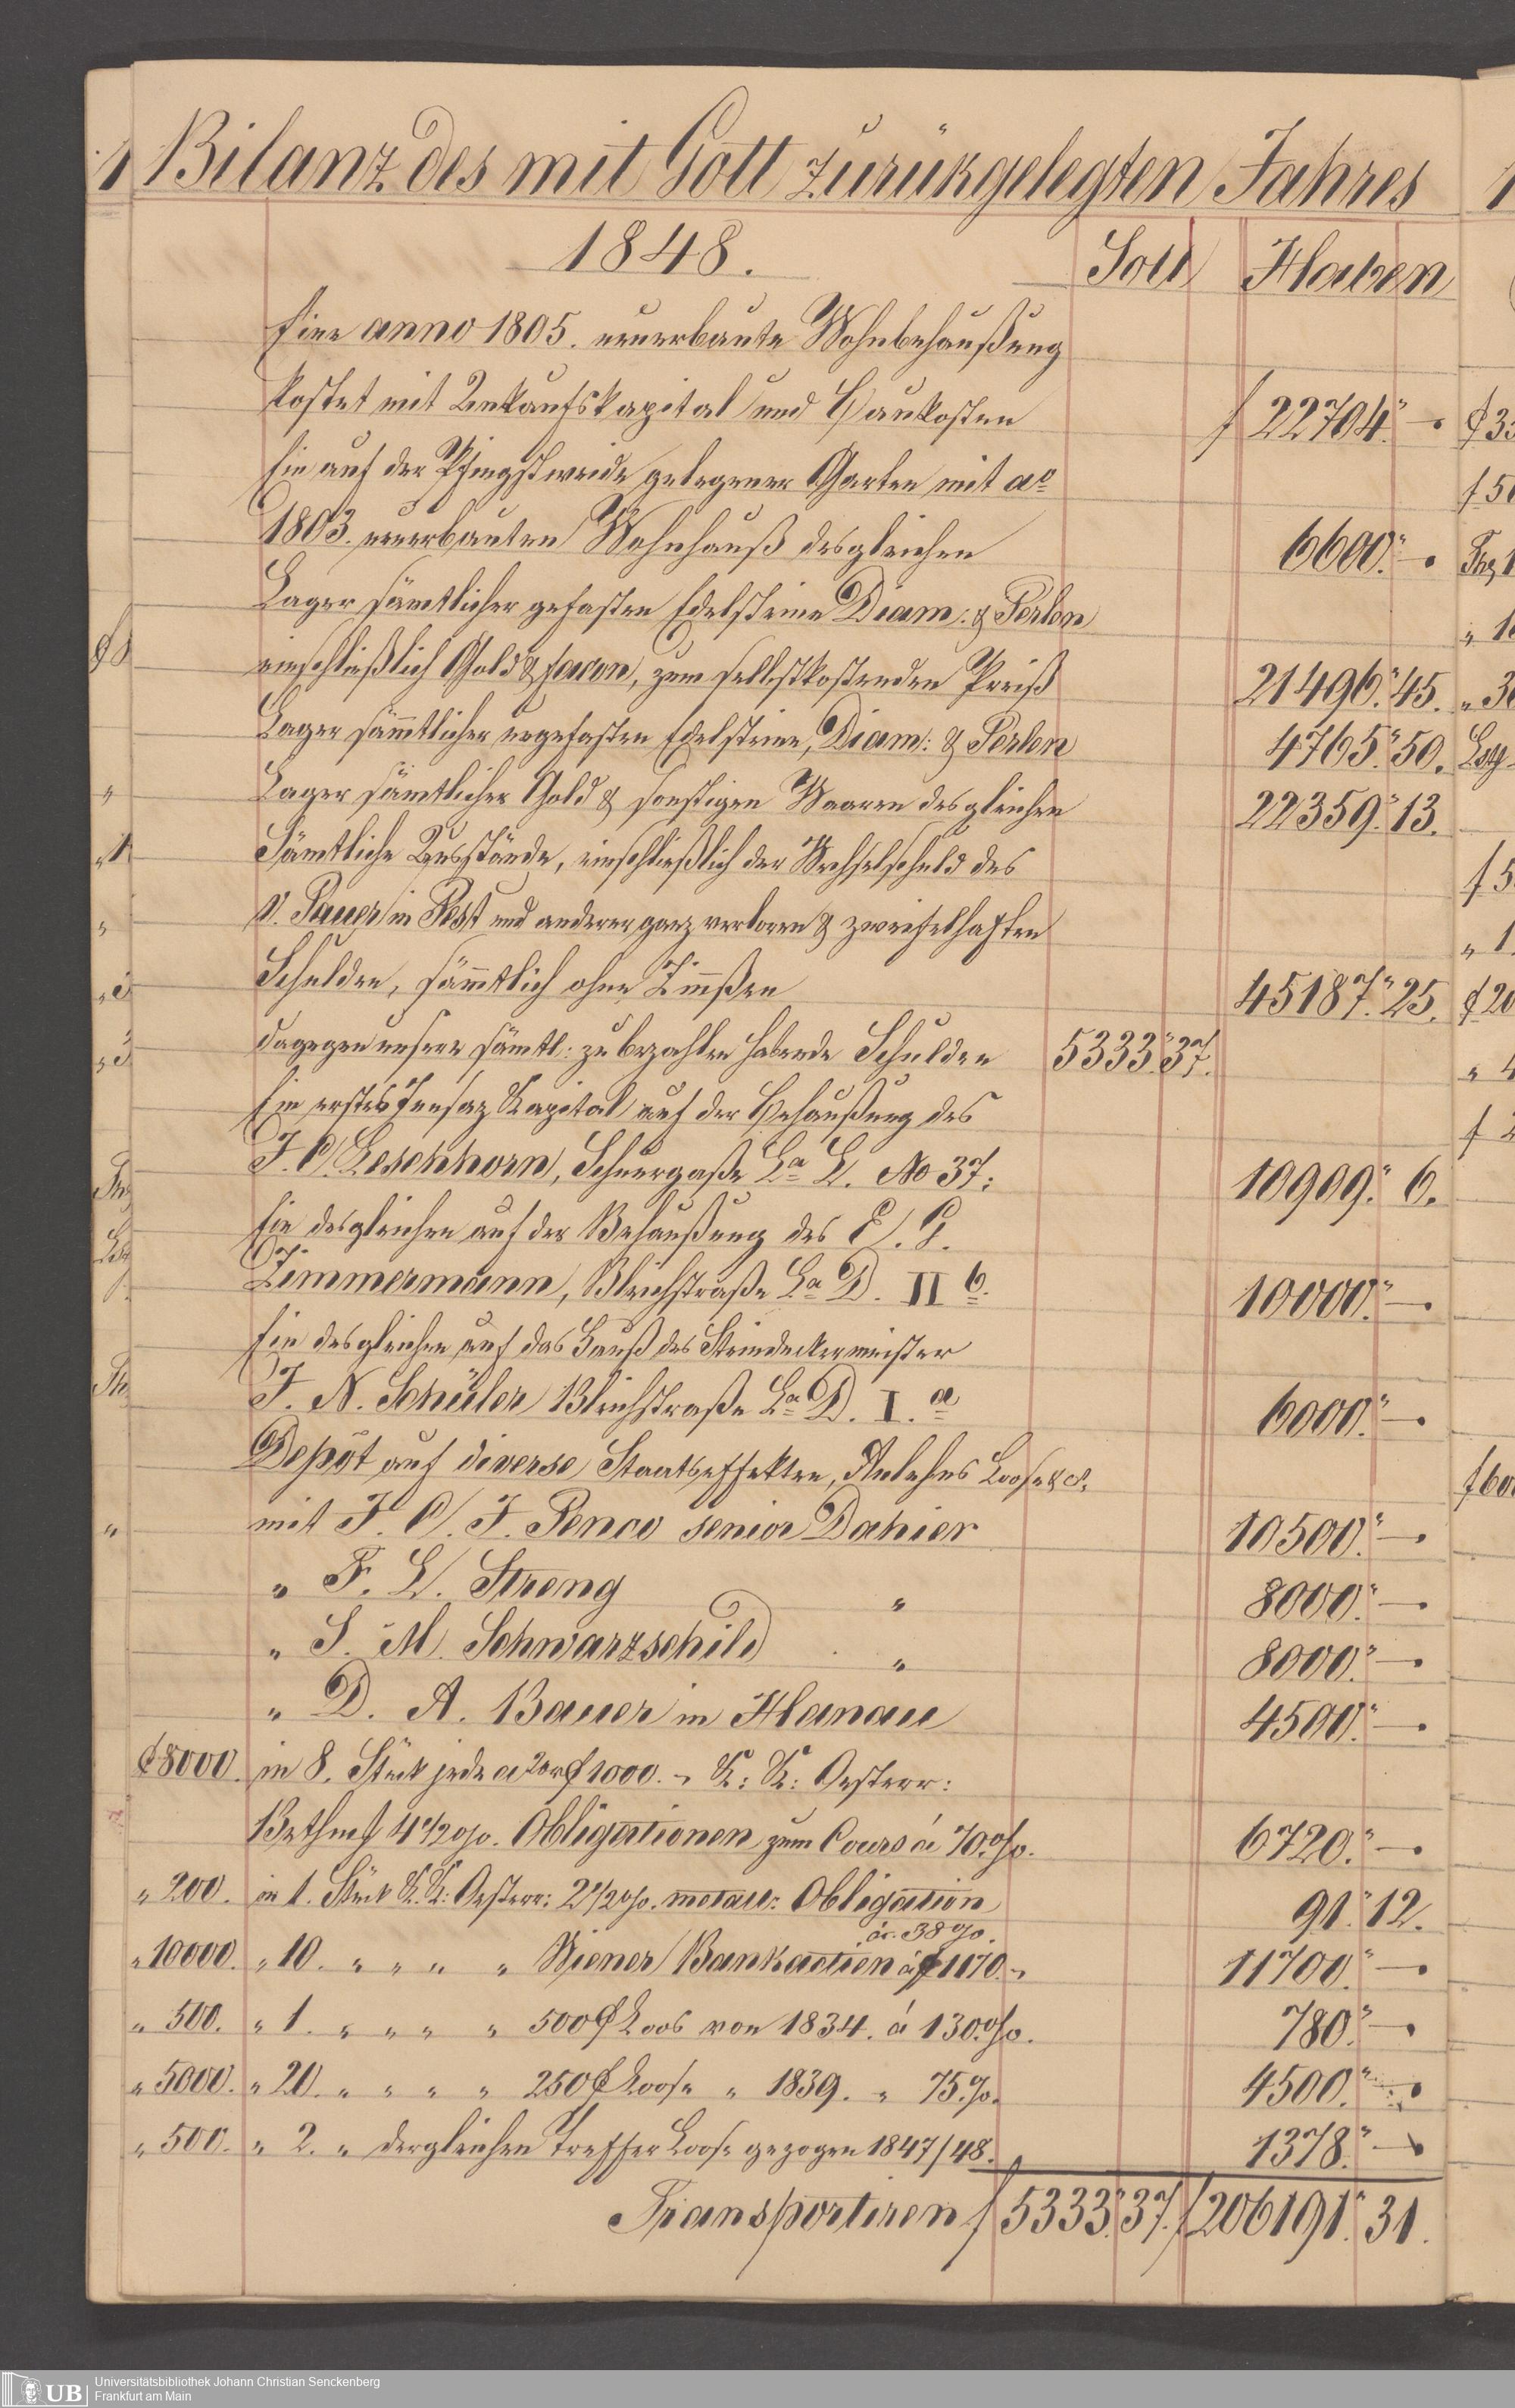 Bilanz des mit Gott zurükgelegten Jahres
1848. Soll Haben
Eine anno 1805. neuerbaute Wohnbehaußung
kostet mit Ankaufskapital und Baukosten f 22704.." —.
Ein auf der Pfingstweide gelegener Garten mit ao
1803. neuerbauten Wohnhauß desgleichen 6600.." —.
Lager sämtlicher gefasten Edelsteine Diam: & Perlen
einschließlich Gold & facon, zum selbstkostenden Preiß 21496.." 45.
Lager sämtlicher ungefasten Edelsteine, Diam: & Perlen 4765.." 50.
Lager sämtlicher Gold & sonstigen Waaren desgleichen 22359.." 13.
Sämtliche Ausstände, einschließlich der Wechselschuld des
v. Pauer in Pest und anderer ganz verloren & zweifelhaften
Schulden, sämtlich ohne Zinnßen 45187.." 25.
dagegen unsere sämtl: zu bezahlen habende Schulden 5333.." 37.
Ein erstes Insaz Kapital auf der Behaußung des
J. C. Leschhorn, Schnurgaße La L. No 37: 10909.." 6.
Ein desgleichen auf der Behaußung des
Zimmermann, Bleichstraße La D. II b. 10000.." —.
Ein desgleichen auf das Hauß des Steindeckermeister
J. N. Schüler Bleichstraße La D. I. a 6000.." —.
Depôt auf diverse Staatseffekten, Anlehns Loose &c.
mit J. C. J. Penco senior Dahier 10500.." —.
" F. L. Streng " 8000.." —.
" S. M. Schwarzschild " 8000.." —.
" D. A. Bauer in Hanau 4500.." —.
f 8000. in 8. Stük jede a f 1000. - K: K: Oesterr:
Bethm 4 1/2 %. Obligationen zum Cours à 70 %. 6720.." —.
" 200. in 1. Stük K. K: Oesterr: 2 1/2 %. metall: Obligation 91.." 12.
à. 38 %.
" 10000. " 10. " " " " Wiener Bankactien à f 1170. - 11700.." —.
" 500. " 1. " " " " 500 f Loos von 1834. à 130 %. 780.." —.
" 5000. " 20. " " " " 250 f Loose " 1839. " 75 %. 4500.." —.
" 500. " 2. " dergleichen Treffer Loose gezogen 1847/48. 1378.." —.
Transportiren f 5333.." 37. f 206191.." 31.
UB Universitätsbibliothek Johann Christian Senckenberg
Frankfurt am Main